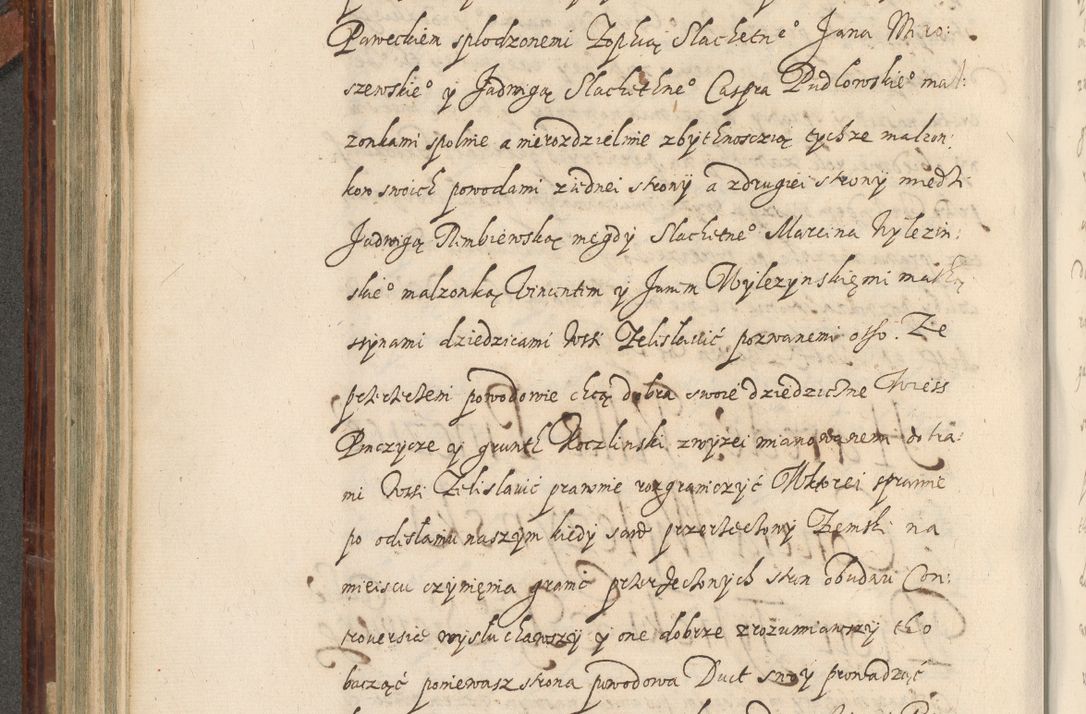 Paweckiem spłodzonemi Zophią Slachetneº Jana Mro:
szewskieº y Jadwigą Slachetneº Caspra Pudlowskieº mał:
zonkami spolnie a nierozdzielnie zbythnoscią tychze malzon:
kow swoich powodami ziednei strony a zdrugiei strony miedzi
Jadwigą Rembiewską niegdy Slachetneº Marcina Wylezin:
skieº malzonką Vincentim y Janem Wylezynskięmi matką
synami dziedzicami wsi Zelislawic pozwanemi otho. Ze
przerzeczeni powodowie chcą dobra swoie dziedziczne Wiess
Pnczyce y grunth Koczlinski zwyzei mianowanem do tia:
mi wsi Zelislawic prawnie rozgraniczyć Wktorei sprawie
po odesłaniu naszym kiedy sand przerzeczony Ziemski na
mieiscu czynięnia granic przerzeczonych stron obudwu Con:
trouersie wysłuchawszy y one dobrze zrozumiawszy tho
bacząć poniewasz strona powodowa Duct swoy prowadząć